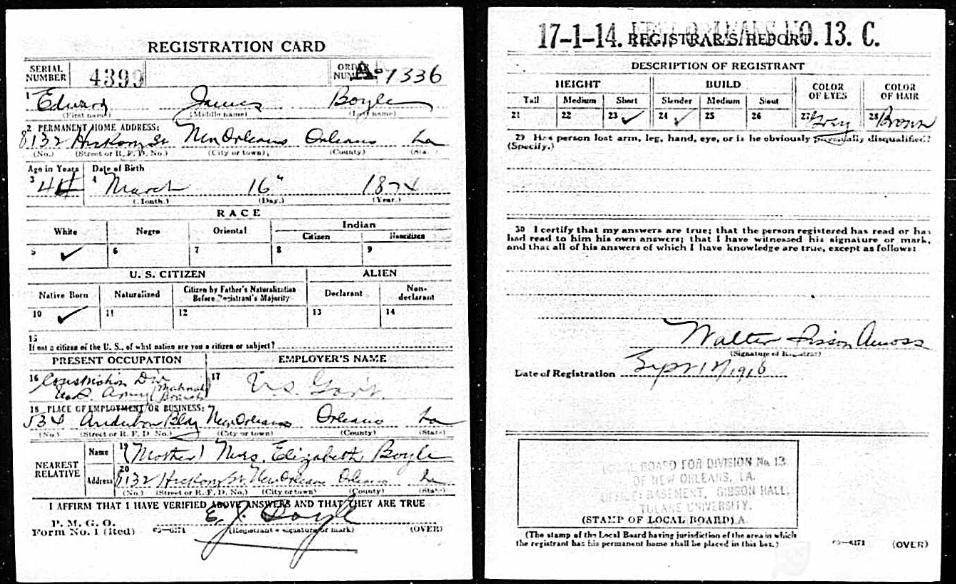 REGISTRATION CARD
SERIAL NUMBER 4399 ORDER NUMBER A 1336
1 Edward James Boyle
(First name) (Middle name) (Last name)
2 PERMANENT HOME ADDRESS:
8132 Hickory St New Orleans Orleans La
(No.) (Street or R. F. D. No.) (City or town) (County) (State)
Age in Years Date of Birth
3 44 4 March 16" 1874
(Month.) (Day.) (Year.)
RACE
White Negro Oriental Indian
Citizen Noncitizen
5 ✓ 6 7 8 9
U. S. CITIZEN ALIEN
Native Born Naturalized Citizen by Father's Naturalization Before Registrant's Majority Declarant Non-declarant
10 ✓ 11 12 13 14
15
If not a citizen of the U. S., of what nation are you a citizen or subject?
PRESENT OCCUPATION EMPLOYER'S NAME
16 Construction Div 17 U.S. Govt.
U.S. Army (Branch)
18 PLACE OF EMPLOYMENT OR BUSINESS:
534 Audubon Bldg New Orleans Orleans La
(No.) (Street or R. F. D. No.) (City or town) (County) (State)
NEAREST RELATIVE
Name 19 (Mother) Mrs. Elizabeth Boyle
Address 20 8132 Hickory St New Orleans Orleans La
(No.) (Street or R. F. D. No.) (City or town) (County) (State)
I AFFIRM THAT I HAVE VERIFIED ABOVE ANSWERS AND THAT THEY ARE TRUE
P. M. G. O.
Form No. 1 (Red) E. J. Boyle
(Registrant's signature or mark) (OVER)
17-1-14. NEW ORLEANS NO. 13. C.
REGISTRAR'S REPORT
DESCRIPTION OF REGISTRANT
HEIGHT BUILD COLOR OF EYES COLOR OF HAIR
Tall Medium Short Slender Medium Stout
21 22 23 ✓ 24 ✓ 25 26 27 Grey 28 Brown
29 Has person lost arm, leg, hand, eye, or is he obviously physically disqualified?
(Specify.)
30 I certify that my answers are true; that the person registered has read or has
had read to him his own answers; that I have witnessed his signature or mark,
and that all of his answers of which I have knowledge are true, except as follows:
Walter
(Signature of Registrar)
Date of Registration Sept 12, 1918
LOCAL BOARD FOR DIVISION No. 13
OF NEW ORLEANS, LA.
OFFICE: BASEMENT, GIBSON HALL,
TULANE UNIVERSITY.
(STAMP OF LOCAL BOARD)
(The stamp of the Local Board having jurisdiction of the area in which
the registrant has his permanent home shall be placed in this box.)
(OVER)